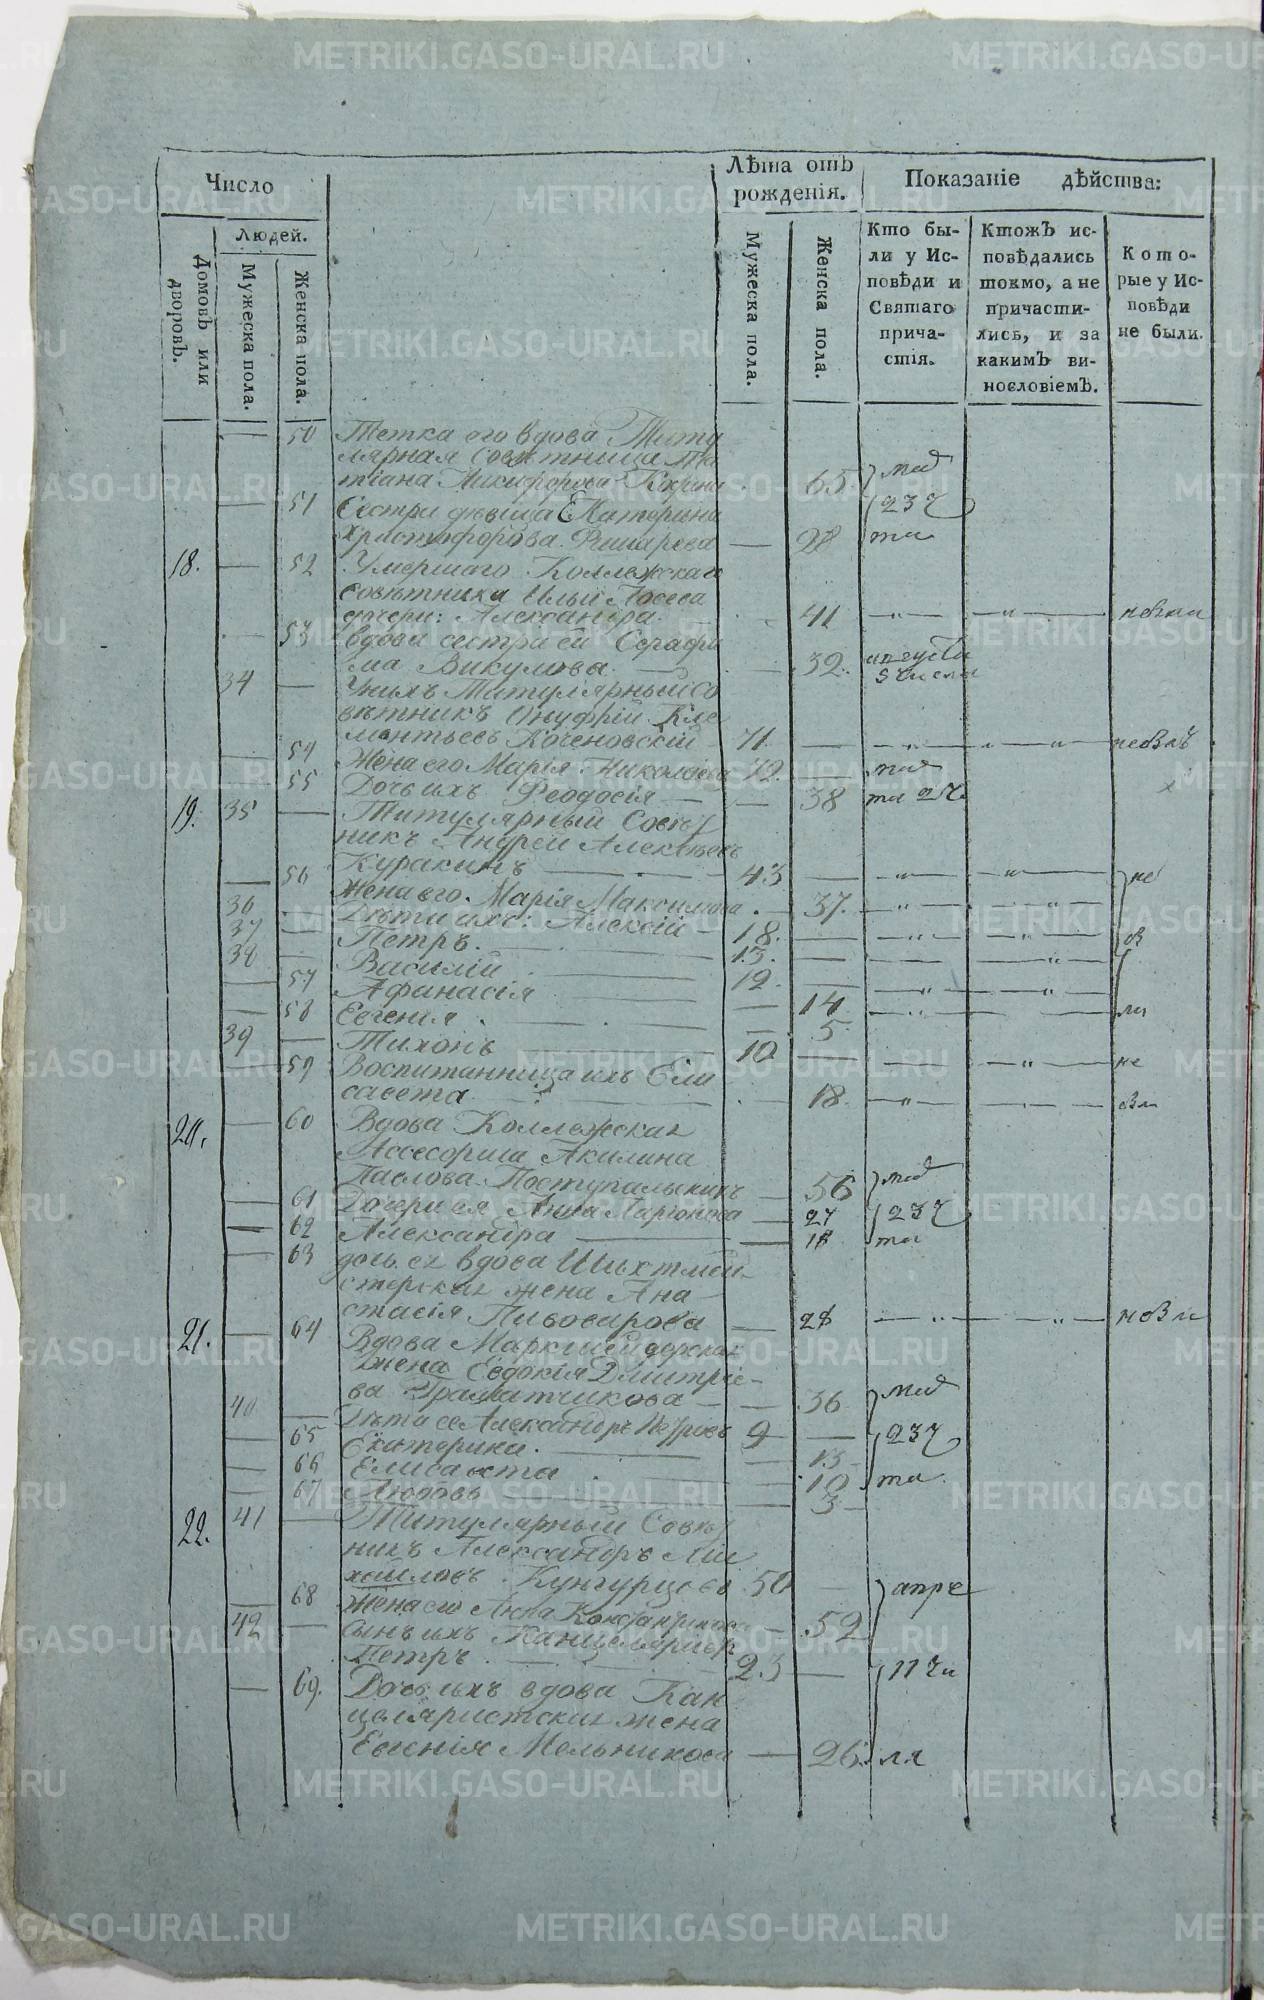 Число
Лѣта отъ рожденія.
Показаніе дѣйства:
Людей.
Домовъ или дворовъ.
Мужеска пола.
Женска пола.
Мужеска пола.
Женска пола.
Кто бы-
ли у Ис-
повѣди и
Святаго
прича-
стія.
Ктожъ ис-
повѣдались
токмо, а не
причасти-
лись, и за
какимъ ви-
нословіемъ.
Кото-
рые у Ис-
повѣди
не были.
— 50 Тетка его вдова Титу
лярная Совѣтница Та
тіана Никифорова 65
— 51 Сестра дѣвица Екатерина
Христофорова — 28
18. — 52 Умершаго Коллежскаго
Совѣтника Ильи
дочери: Александра. 41 — " — " —
— 53 вдова сестра ей Серафи
ма Викулова. — 32. августа
5 числа
34 — Унихъ Титулярный Со
вѣтникъ Онуфрій Кле
ментьевъ Коченовскій 71 —
54 Жена его Марія Николаева 72.
55 Дочь ихъ Феодосія — 38
19. 35 — Титулярный Совѣт
никъ Андрей Алексѣевъ
Куракинъ — 43 — не
— 56 Жена его Марія Максимова — 37.
36 Дѣти ихъ: Алексій — 18. —
37 — Петръ. — 13. —
38 — Василій — 12. —
— 57 Афанасія — 14
— 58 Евгенія — 5
39 — Тихонъ — 10 —
— 59 Воспитанница ихъ Ели
савета — 18.
20. — 60 Вдова Коллежская
Ассесорша Акилина
Паслова 56
— 61 Дочери ея Анна Ларіонова — 27
— 62 Александра — 18
— 63 дочь ея вдова Шихтмей
стерская жена Ана-
стасія Пивоварова — 28
21. — 64 Вдова Маркшейдерская
Жена Евдокія Дмитріе-
ва Граматчикова — 36
40 — Дѣти ее Александръ Петровъ 9 —
— 65 Екатерина. — 13
— 66 Елисавета — 10
— 67 Любовь — 3
22. 41 — Титулярный Совѣт
никъ Александръ Ми
хайловъ Кунгурцовъ 50 —
— 68 Жена его Анна Константинова — 52
42 — Сынъ ихъ Канцеляристъ
Петръ — 23 —
— 69. Дочь ихъ вдова Кан
целяристская жена
Евгенія Мельникова — 26
апре
11 чи
ля
METRIKI.GASO-URAL.RU